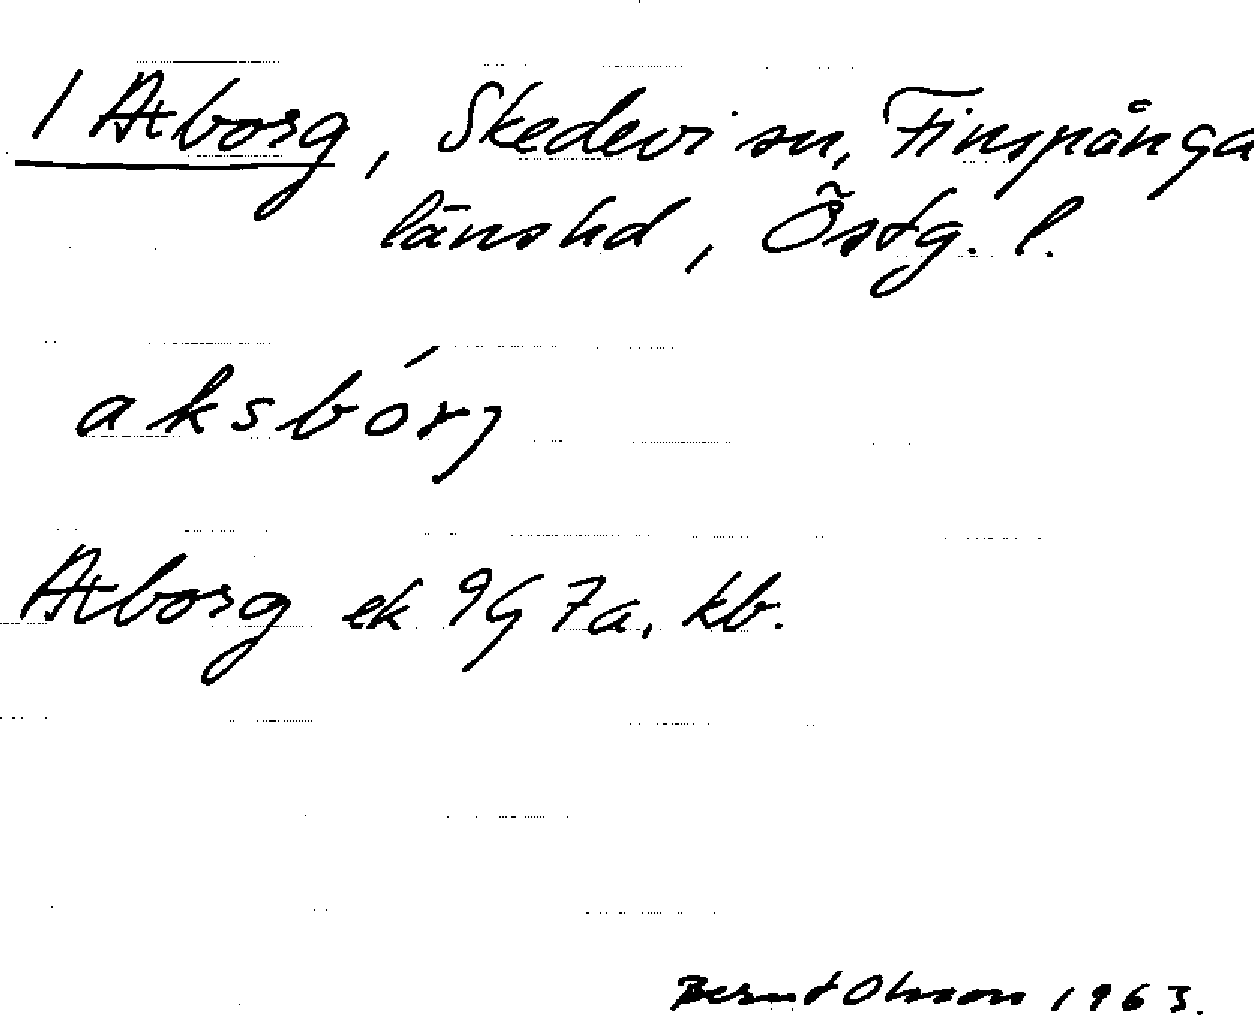 1 Axborg, Skedevi sn, Finspånga
länshd, Östg. l.
aksbórj
Axborg ek 9G7a, kb.
Bernt Olsson 1963.